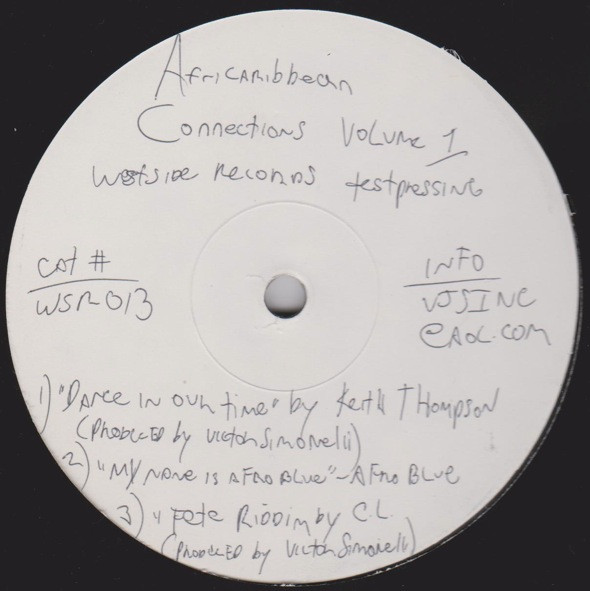 Africaribbean
Connections Volume 1
Westside Records testpressing
Cat #
WSR-013
INFO
VJSINC
@AOL.COM
1) "Dance in our time" by Keith Thompson
(Produced by Victor Simonelli)
2) "My name is Afro Blue" - Afro Blue
3) " Fete Riddim by C.L.
(Produced by Victor Simonelli)